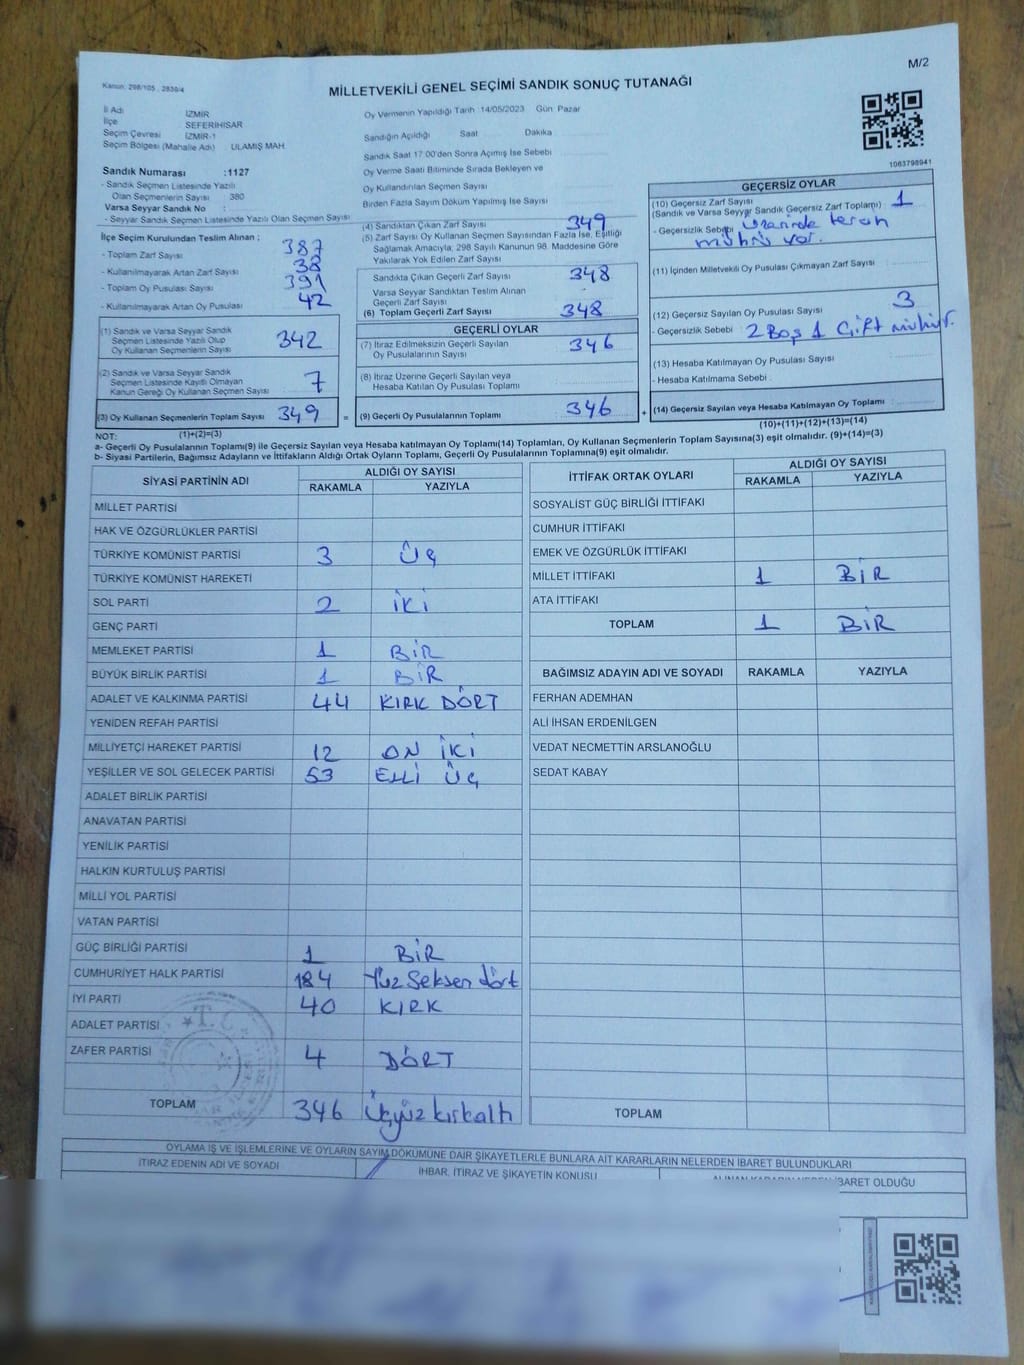 M/2
Kanun: 298/105 , 2839/4
MİLLETVEKİLİ GENEL SEÇİMİ SANDIK SONUÇ TUTANAĞI
İl Adı İZMİR
İlçe SEFERİHİSAR
Seçim Çevresi İZMİR-1
Seçim Bölgesi (Mahalle Adı) ULAMIŞ MAH.
Oy Vermenin Yapıldığı Tarih 14/05/2023 Gün: Pazar
Sandığın Açıldığı Saat Dakika
Sandık Saat 17:00'den Sonra Açımış İse Sebebi
Oy Verme Saati Bitiminde Sırada Bekleyen ve
Oy Kullandırılan Seçmen Sayısı
Birden Fazla Sayım Döküm Yapılmış İse Sayısı
1063798941
Sandık Numarası :1127
- Sandık Seçmen Listesinde Yazılı
Olan Seçmenlerin Sayısı 380
Varsa Seyyar Sandık No :
- Seyyar Sandık Seçmen Listesinde Yazılı Olan Seçmen Sayısı
İlçe Seçim Kurulundan Teslim Alınan ;
- Toplam Zarf Sayısı 387
- Kullanılmayarak Artan Zarf Sayısı 38
- Toplam Oy Pusulası Sayısı 391
- Kullanılmayarak Artan Oy Pusulası 42
(1) Sandık ve Varsa Seyyar Sandık
Seçmen Listesinde Yazılı Olup
Oy Kullanan Seçmenlerin Sayısı 342
(2) Sandık ve Varsa Seyyar Sandık
Seçmen Listesinde Kayıtlı Olmayan
Kanun Gereği Oy Kullanan Seçmen Sayısı 7
(3) Oy Kullanan Seçmenlerin Toplam Sayısı 349 =
(1)+(2)=(3)
(4) Sandıktan Çıkan Zarf Sayısı 349
(5) Zarf Sayısı Oy Kullanan Seçmen Sayısından Fazla İse, Eşitliği
Sağlamak Amacıyla; 298 Sayılı Kanunun 98. Maddesine Göre
Yakılarak Yok Edilen Zarf Sayısı
Sandıkta Çıkan Geçerli Zarf Sayısı 348
Varsa Seyyar Sandıktan Teslim Alınan
Geçerli Zarf Sayısı
(6) Toplam Geçerli Zarf Sayısı 348
GEÇERLİ OYLAR
(7) İtiraz Edilmeksizin Geçerli Sayılan
Oy Pusulalarının Sayısı 346
(8) İtiraz Üzerine Geçerli Sayılan veya
Hesaba Katılan Oy Pusulası Toplamı
(9) Geçerli Oy Pusulalarının Toplamı 346 +
GEÇERSİZ OYLAR
(10) Geçersiz Zarf Sayısı
(Sandık ve Varsa Seyyar Sandık Geçersiz Zarf Toplamı) : 1
- Geçersizlik Sebebi üzerinde tercih
mührü var.
(11) İçinden Milletvekili Oy Pusulası Çıkmayan Zarf Sayısı :
(12) Geçersiz Sayılan Oy Pusulası Sayısı 3
- Geçersizlik Sebebi : 2 Boş 1 Çift mühür.
(13) Hesaba Katılmayan Oy Pusulası Sayısı
- Hesaba Katılmama Sebebi
(14) Geçersiz Sayılan veya Hesaba Katılmayan Oy Toplamı
(10)+(11)+(12)+(13)=(14)
NOT:
a- Geçerli Oy Pusulalarının Toplamı(9) ile Geçersiz Sayılan veya Hesaba katılmayan Oy Toplamı(14) Toplamları, Oy Kullanan Seçmenlerin Toplam Sayısına(3) eşit olmalıdır. (9)+(14)=(3)
b- Siyasi Partilerin, Bağımsız Adayların ve İttifakların Aldığı Ortak Oyların Toplamı, Geçerli Oy Pusulalarının Toplamına(9) eşit olmalıdır.
SİYASİ PARTİNİN ADI ALDIĞI OY SAYISI
RAKAMLA YAZIYLA
MİLLET PARTİSİ
HAK VE ÖZGÜRLÜKLER PARTİSİ
TÜRKİYE KOMÜNİST PARTİSİ 3 ÜÇ
TÜRKİYE KOMÜNİST HAREKETİ
SOL PARTİ 2 İKİ
GENÇ PARTİ
MEMLEKET PARTİSİ 1 BİR
BÜYÜK BİRLİK PARTİSİ 1 BİR
ADALET VE KALKINMA PARTİSİ 44 KIRK DÖRT
YENİDEN REFAH PARTİSİ
MİLLİYETÇİ HAREKET PARTİSİ 12 ON İKİ
YEŞİLLER VE SOL GELECEK PARTİSİ 53 ELLİ ÜÇ
ADALET BİRLİK PARTİSİ
ANAVATAN PARTİSİ
YENİLİK PARTİSİ
HALKIN KURTULUŞ PARTİSİ
MİLLİ YOL PARTİSİ
VATAN PARTİSİ
GÜÇ BİRLİĞİ PARTİSİ 1 BİR
CUMHURİYET HALK PARTİSİ 184 Yüz Seksen dört
İYİ PARTİ 40 KIRK
ADALET PARTİSİ
ZAFER PARTİSİ 4 DÖRT
TOPLAM 346 Üçyüz kırkaltı
T.C.
İTTİFAK ORTAK OYLARI ALDIĞI OY SAYISI
RAKAMLA YAZIYLA
SOSYALİST GÜÇ BİRLİĞİ İTTİFAKI
CUMHUR İTTİFAKI
EMEK VE ÖZGÜRLÜK İTTİFAKI
MİLLET İTTİFAKI 1 BİR
ATA İTTİFAKI
TOPLAM 1 BİR
BAĞIMSIZ ADAYIN ADI VE SOYADI RAKAMLA YAZIYLA
FERHAN ADEMHAN
ALİ İHSAN ERDENİLGEN
VEDAT NECMETTİN ARSLANOĞLU
SEDAT KABAY
TOPLAM
OYLAMA İŞ VE İŞLEMLERİNE VE OYLARIN SAYIM DÖKÜMÜNE DAİR ŞİKAYETLERLE BUNLARA AİT KARARLARIN NELERDEN İBARET BULUNDUKLARI
İTİRAZ EDENİN ADI VE SOYADI İHBAR, İTİRAZ VE ŞİKAYETİN KONUSU İBARET OLDUĞU